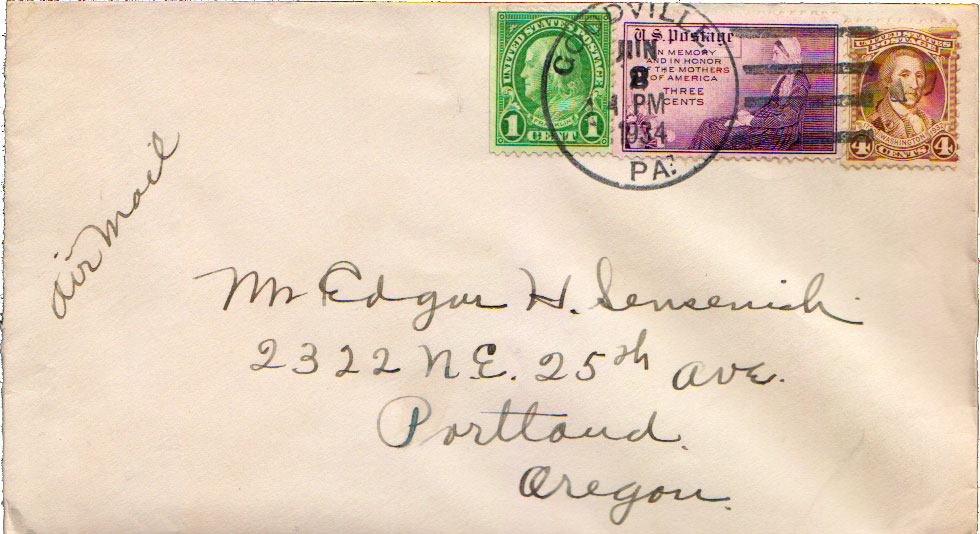 UNITED STATES POSTAGE
FRANKLIN
1 CENT 1
U.S. Postage
IN MEMORY
AND IN HONOR
OF THE MOTHERS
OF AMERICA
THREE
CENTS
UNITED STATES
POSTAGE
WASHINGTON
4 CENTS 4
GOODVILLE
JUN
8
PM
1934
PA.
air mail
Mr Edgar H. Sensenich
2322 N.E. 25th Ave.
Portland.
Oregon.